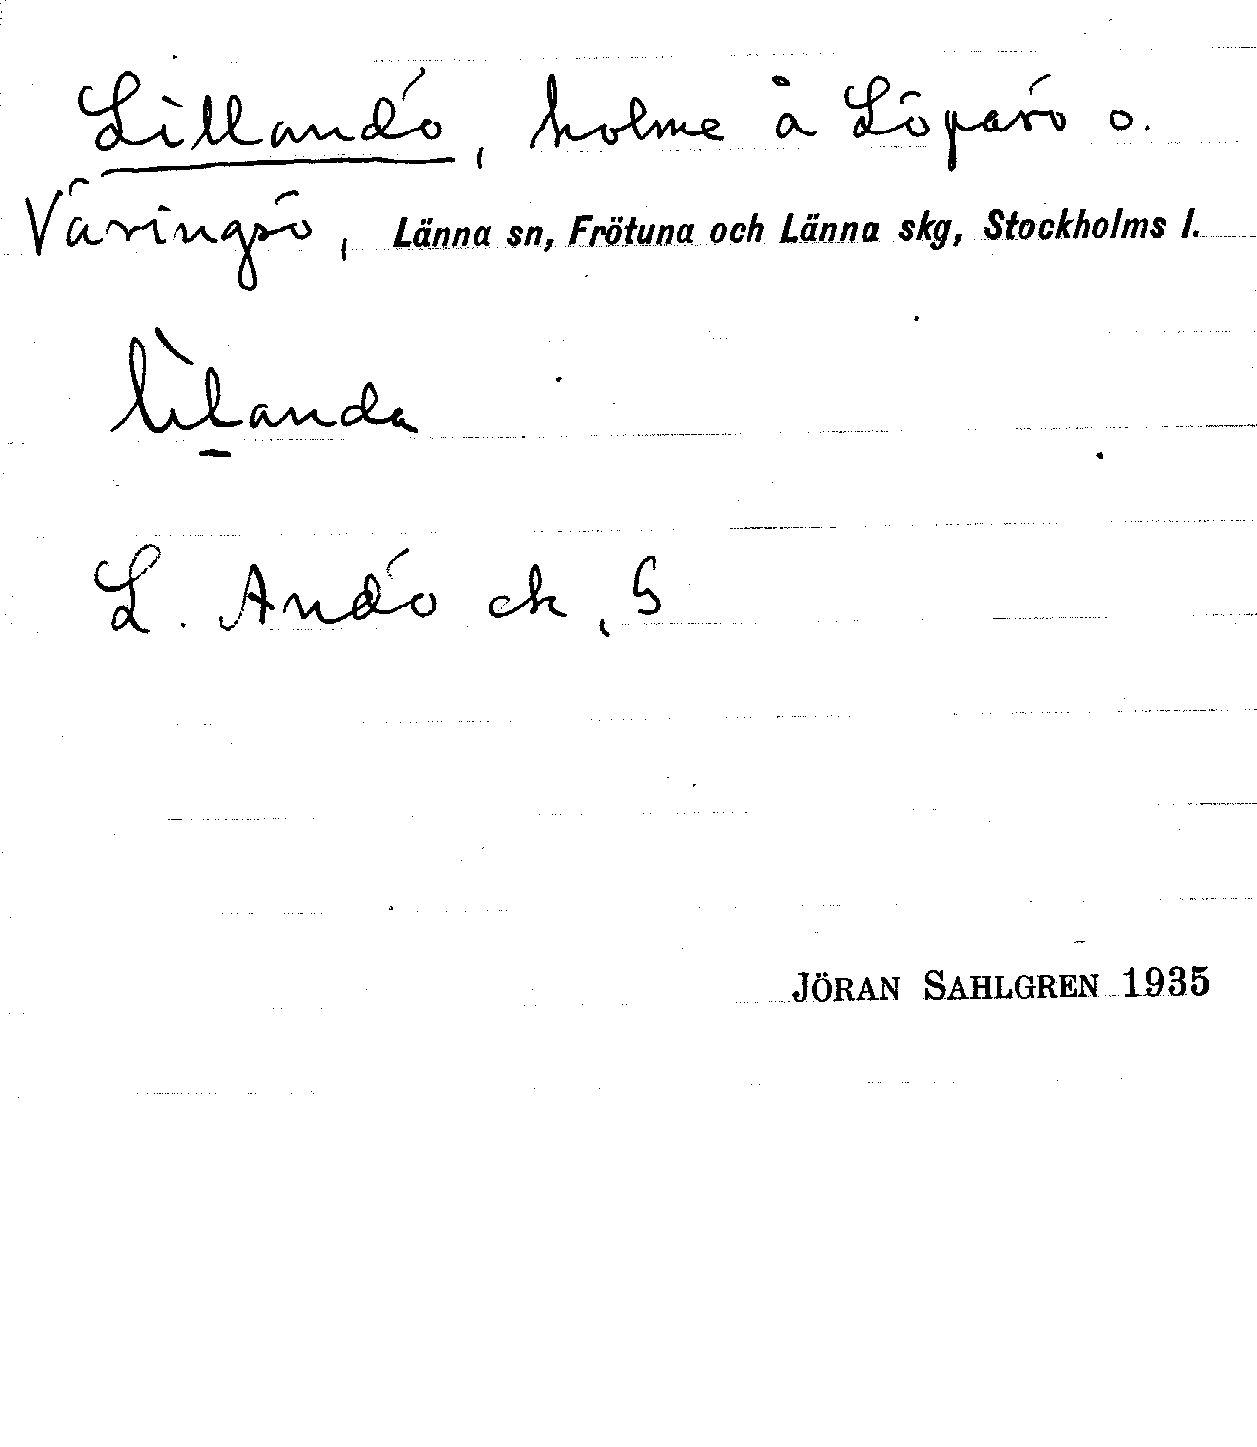 Lillandö, holme å Löparö o.
Väringsö, Länna sn, Frötuna och Länna skg, Stockholms l.
lìlanda
L. Andö ek, S
JÖRAN SAHLGREN 1935